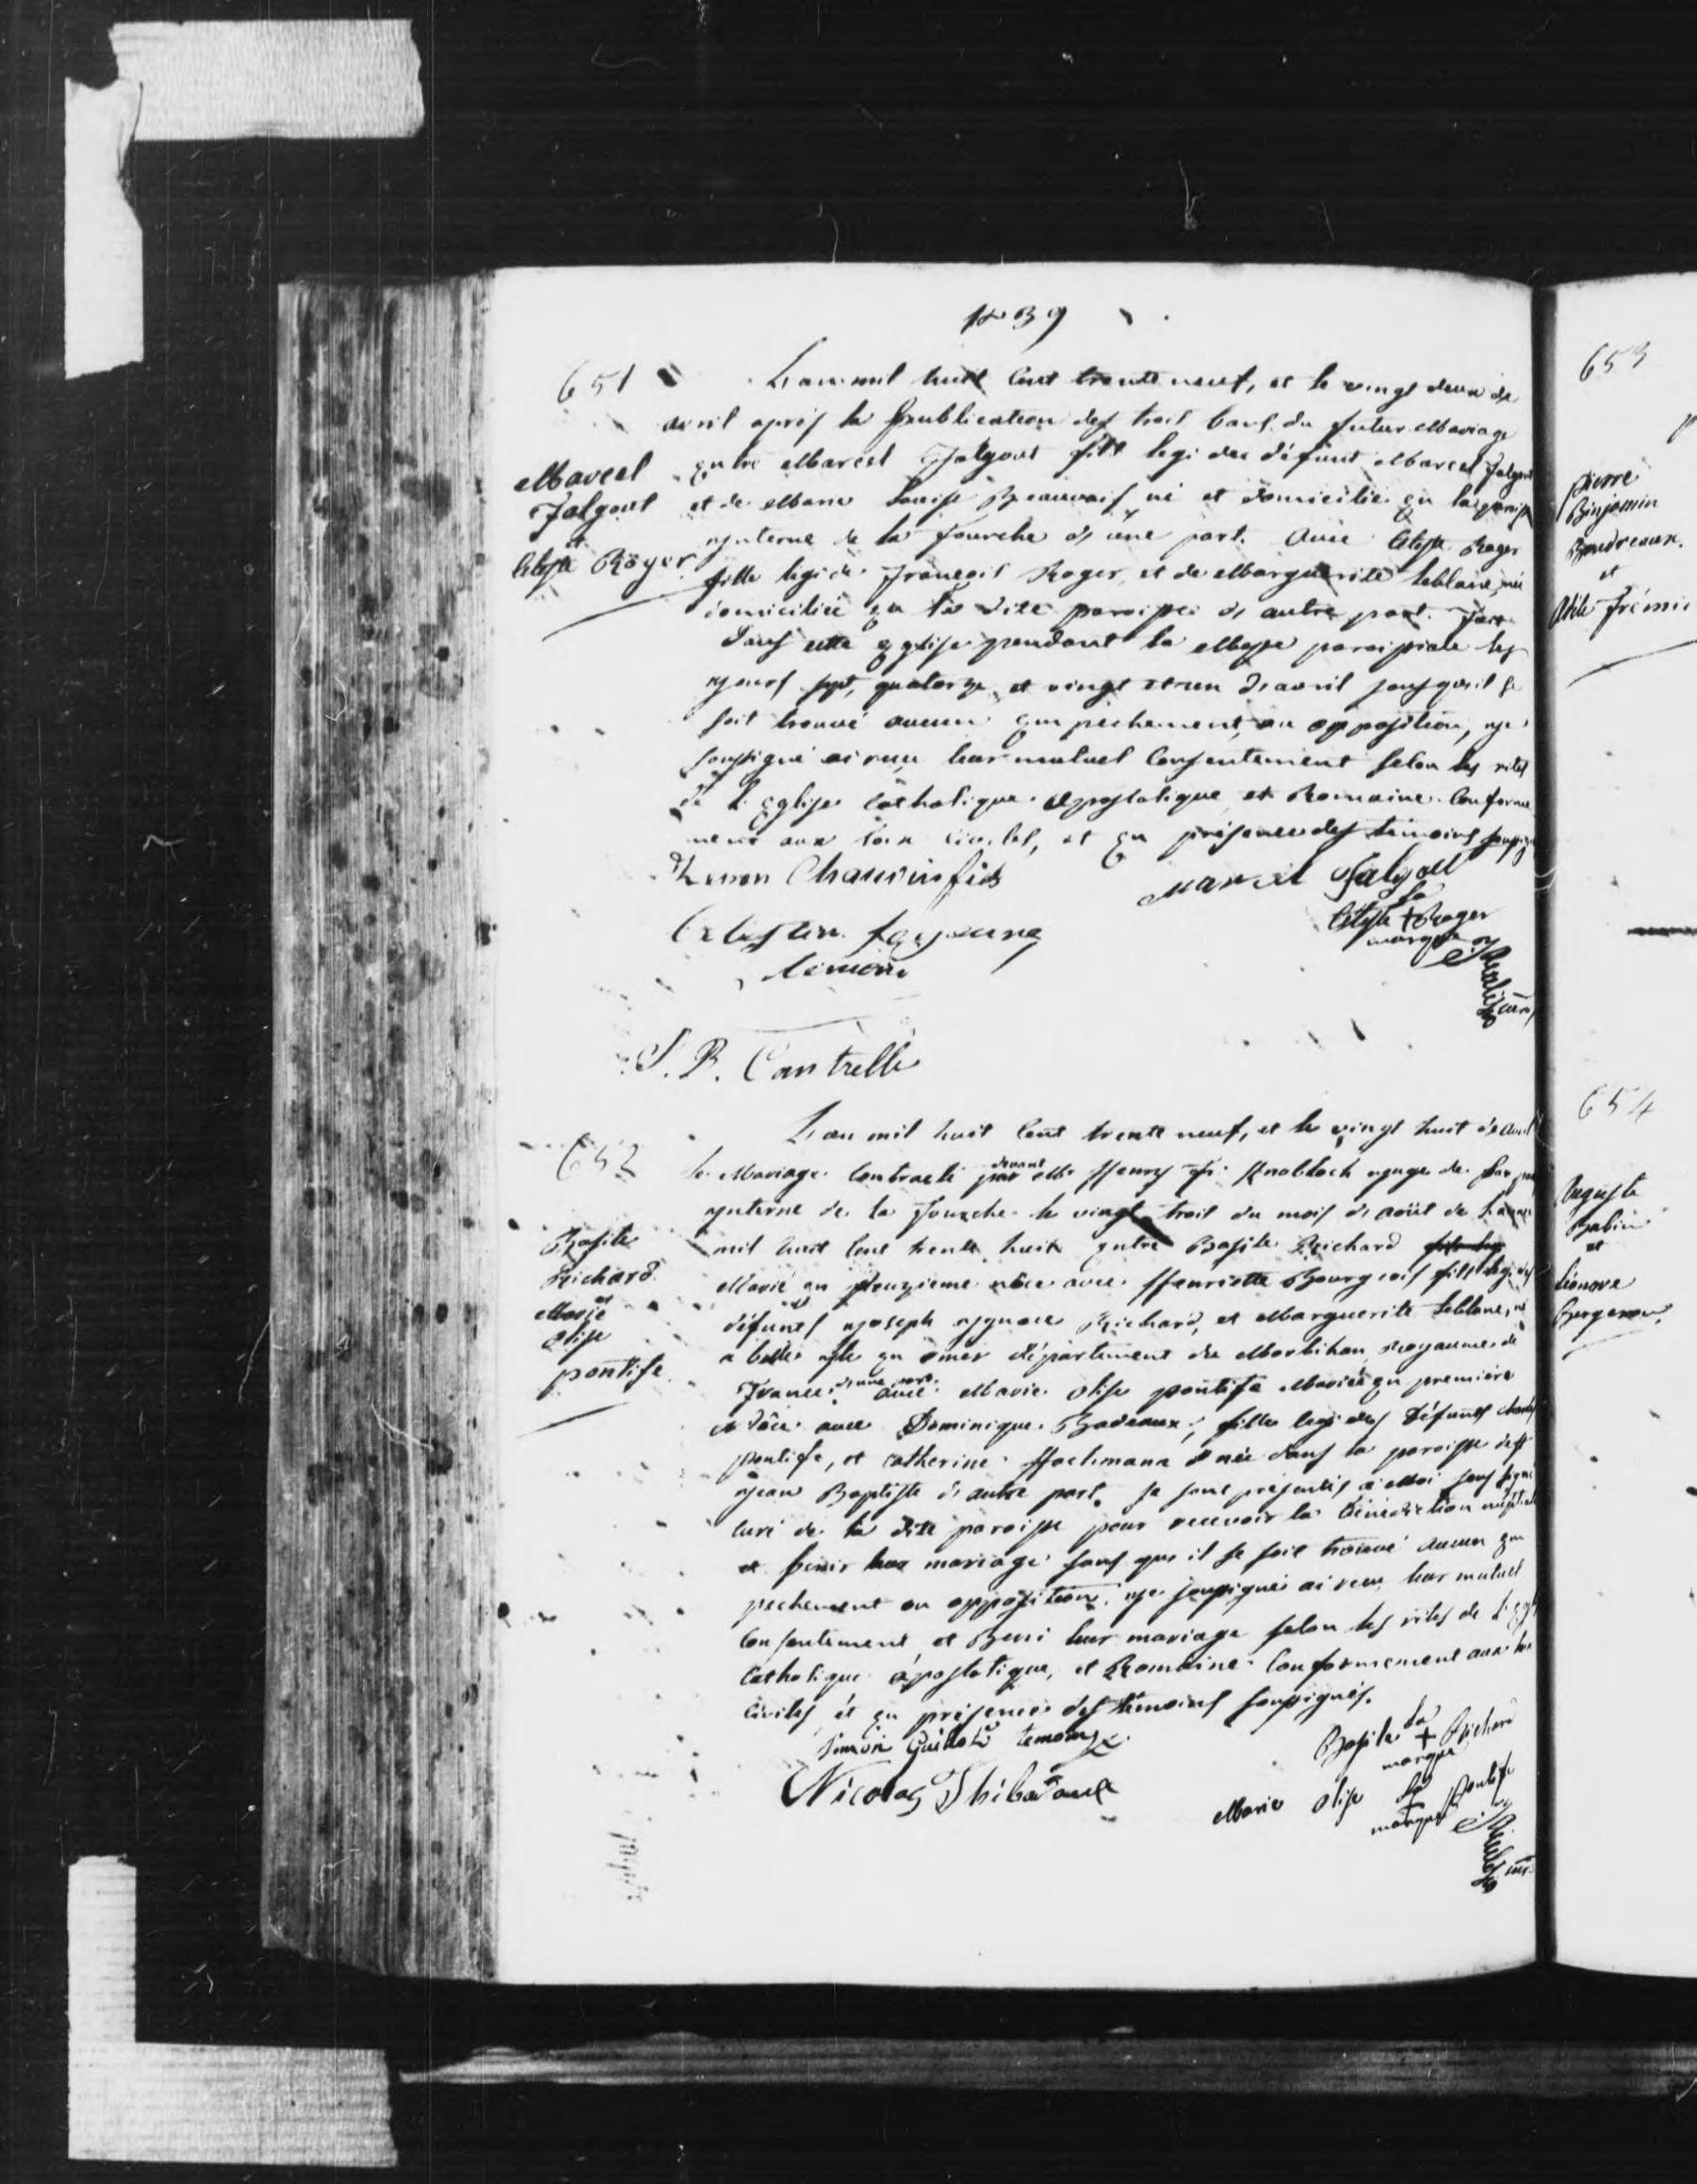 1839
651
L'an mil huit Cent trente neuf, et le vingt deux de
avril après la publication des trois bans du futur Mariage
Marcel
Falgout
et
Celeste Roger
entre Marcel Falgout fils legi de défunt Marcel Falgout
et de Marie Louise Beauvais né et domicilié en la parois
interne de la fourche d'une part. Avec Celeste Roger
fille legi de François Roger, et de Marguerite Leblanc, née
domiciliée en la dite paroisse d'autre part. Fait
Dans cette Eglise pendant la Messe paroissiale les
jours sept, quatorze et vingt et un d'avril sans qu'il se
soit trouvé aucun empechement, ou opposition, je
soussigné ai reçu leur mutuel Consentement selon les rites
de L'Eglise Catholique Apostolique et Romaine. Conforme
ment aux Loix Civiles, et en présence des témoins soussig
Zenon Chauvin fils
Marcel Falgout
sa
Celeste + Roger
marque
temoin
curé
J. B. Cantrelle
652
L'an mil huit Cent trente neuf, et le vingt huit de avril
le Mariage Contracté par devant Mr Henry F. Knobloch juge de
interne de la Fourche le vingt trois du mois d'août de L'année
Basile
Richard
et
Marie
Olise
pontife
mil huit Cent trente huit entre Basile Richard fils leg
Marié en deuzieme nôce avec Henriette Bourgeois fils legi des
défunts joseph ignace Richard, et Marguerite Leblanc, né
a belle isle en mer département du Morbihan Royaume de
France d'une part. avec Marie Olise pontife Mariée en premiere
Nôce avec Dominique Badeaux, fille legi des Défunts charles
pontife, et catherine née dans la paroisse de St
jean Baptiste d'autre part. Se sont présentés a Moi sous signé
Curé de la dite paroisse pour recevoir la bénédiction nuptiale
et benir leur mariage sans que il se soit trouvé aucun em
pechement ou opposition. je soussigné ai reçu leur mutuel
Consentement et Beni leur mariage selon les rites de L'Egl
Catholique apostolique, et Romaine Conformement aux
Civiles et en présence des témoins soussignés.
Simon temoing
Nicolas Thibodaux
sa
Basile + Richard
marque
Marie Olise sa + pontife
marque
653
pierre
Binjamin
Boudreaux
et
654
Auguste
Babin
et
Léonore
Bergeron